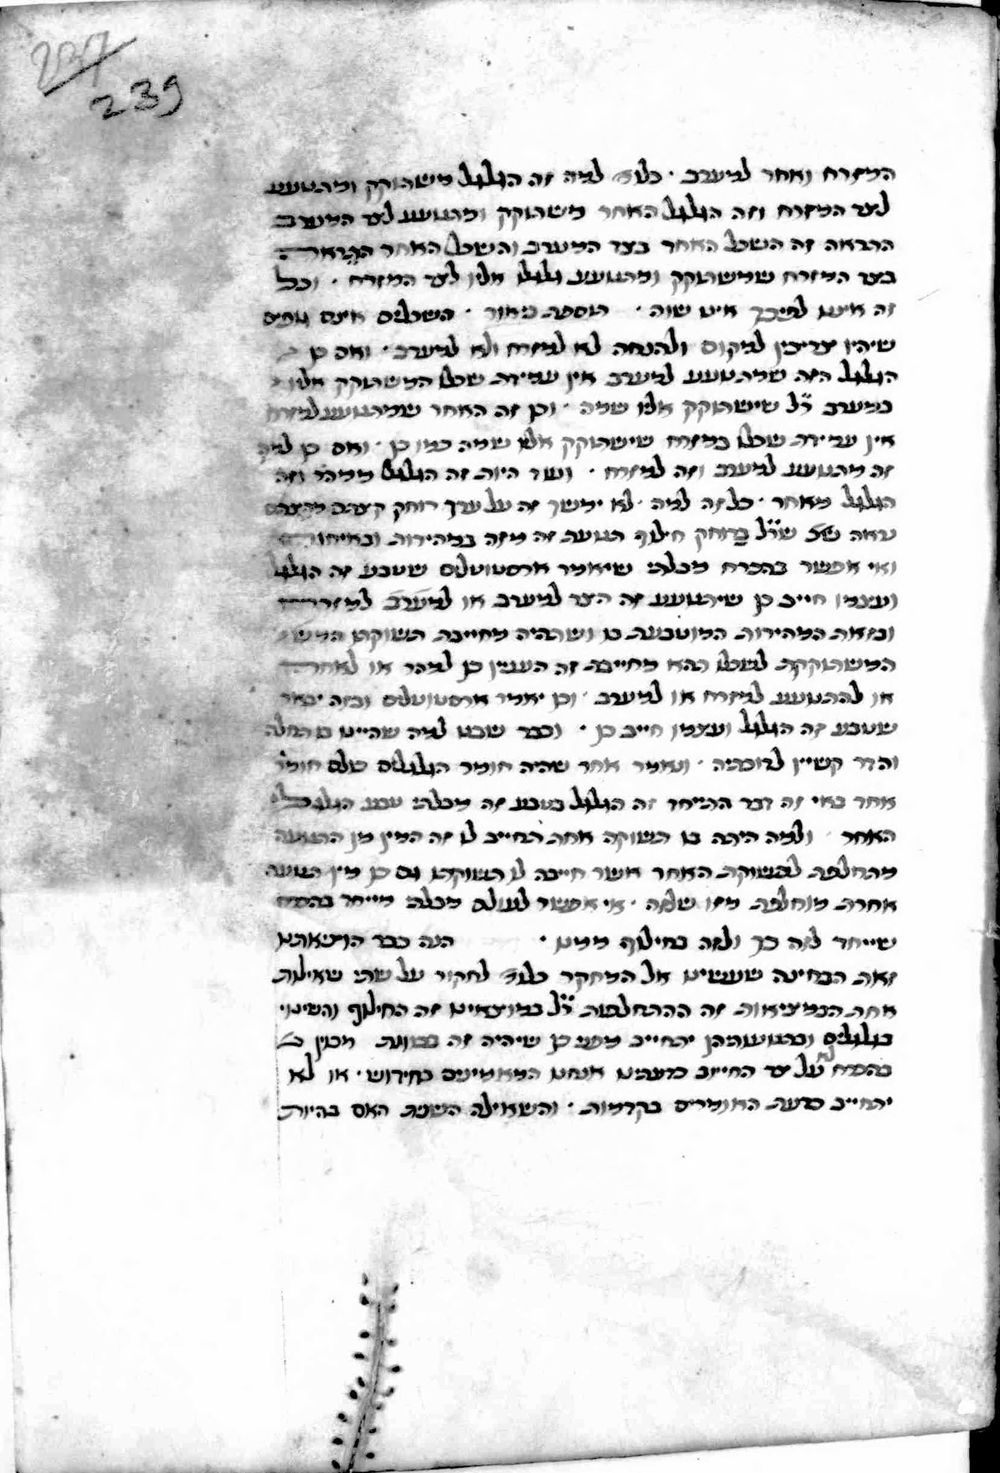 237
239
המזרח ואחר למערב · כלו' למה זה הגלגל משתוקק ומתנועע
לצד המזרח וזה הגלגל האחר משתוקק ומתנועע לצד המערב
התראה זה השכל האחד בצד המערב והשכל האחר התראה
בצד המזרח שמשתוקק ומתנועע גלגלו אליו לצד המזרח · וכל
זה אינו איט שוה · תוספת באור · השכלים אינם גופים
שיהיו צריכין למקום ולהנחה לא למזרח ולא למערב · ואם כן
הגלגל הזה שמתנועע למערב אין עמידת שכלו המשתוקק אליו
במערב ר"ל שישתוקק אליו שמה · וכן זה האחר שמתנועע למזרח
אין עמידת שכלו במזרח שישתוקק אליו שמה כמו כן · ואם כן למה
זה מתנועע למערב וזה למזרח · ועוד היות זה הגלגל ממהר וזה
הגלגל מאחר · כל זה למה · לא ימשך זה על ערך רוחק קצתם מקצתם
חילוף תנועת זה מזה במהירות ובאיחור
ואי אפשר בהכרח מבלתי שיאמר ארסטוטלוס שטבע זה הגלגל
ועצמו חייב כן שיתנועע זה הצד למערב או למערב למזרח
ובזאת המהירות המוטבעת בו ושתהיה מחייבת תשוקתו
המשתוקקת לשכלו ההא מחייבת זה הענין כן למהר או לאחר
או להתנועע למזרח או למערב · וכן יאמר ארסטוטלוס ובזה יבאר
שטבע זה הגלגל ועצמו חייב כן · וכבר שבנו למה שהיינו בו תחלה
והדר קשיין לדוכתיה · ונאמר אחר שהיה חומר הגלגלים כולם חומר
אחד באי זה דבר התיחד זה הגלגל בטבע זה מבלתי טבע הגלגל
האחר · ולמה היתה בו תשוקה אחת תחייב לו זה המין מן התנועה
מתחלפת לתשוקת האחר אשר חייבה לו תשוקתו גם כן מין תנועה
אחרת מוחלפת מזו שלזה · אי אפשר לעולם מבלתי מייחד בהכרח
שייחד לזה כך ולזה בחילוף ממנו · הנה כבר הוציאתנו
זאת הבחינה שעשינו אל המחקר כלו' לחקור על שתי שאילות
אחת הנמציאות זה ההתחלפות ר"ל במוצאינו זה החילוף והשינוי
בגלגלים ובתנועותיהן יתחייב מפני כן שיהיה זה בכוונת מכוין
בהכרח לא על צד החיוב כדעתינו אנחנו המאמינים בחידוש · או לא
יתחייב כדעת האומרים בקדמות · והשאילה השנית האם בהיות